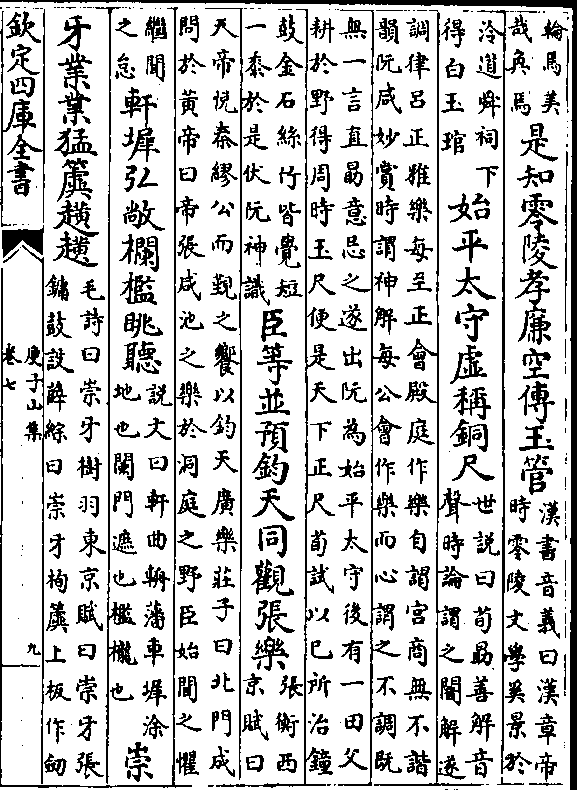 輪馬美
哉奐焉
是知零陵孝廉空傳玉管
漢書音義曰漢章帝
時零陵文學奚景於
泠道舜祠下
得白玉琯
始平太守虛稱銅尺
世說曰荀勗善解音
聲時論謂之闇解遂
調律呂正雅樂每至正會殿庭作樂自謂宮商無不諧
韻阮咸妙賞時謂神解每公會作樂而心謂之不調既
無一言直勗意忌之遂出阮為始平太守後有一田父
耕於野得周時玉尺便是天下正尺荀試以已所治鐘
鼓金石絲竹皆覺短
一黍於是伏阮神識
臣等並預鈞天同觀張樂
張衡西
京賦曰
天帝恱秦繆公而覲之饗以鈞天廣樂莊子曰北門成
問於黃帝曰帝張咸池之樂於洞庭之野臣始聞之懼
繼聞
之怠
軒墀弘敞欄檻眺聽
說文曰軒曲輈藩車墀涂
地也闌門遮也檻櫳也
崇
牙業業猛簴趪趪
毛詩曰崇牙樹羽東京賦曰崇牙張
鏞鼓設薛綜曰崇牙栒簴上板作劒
欽定四庫全書
庾子山集
卷七
九